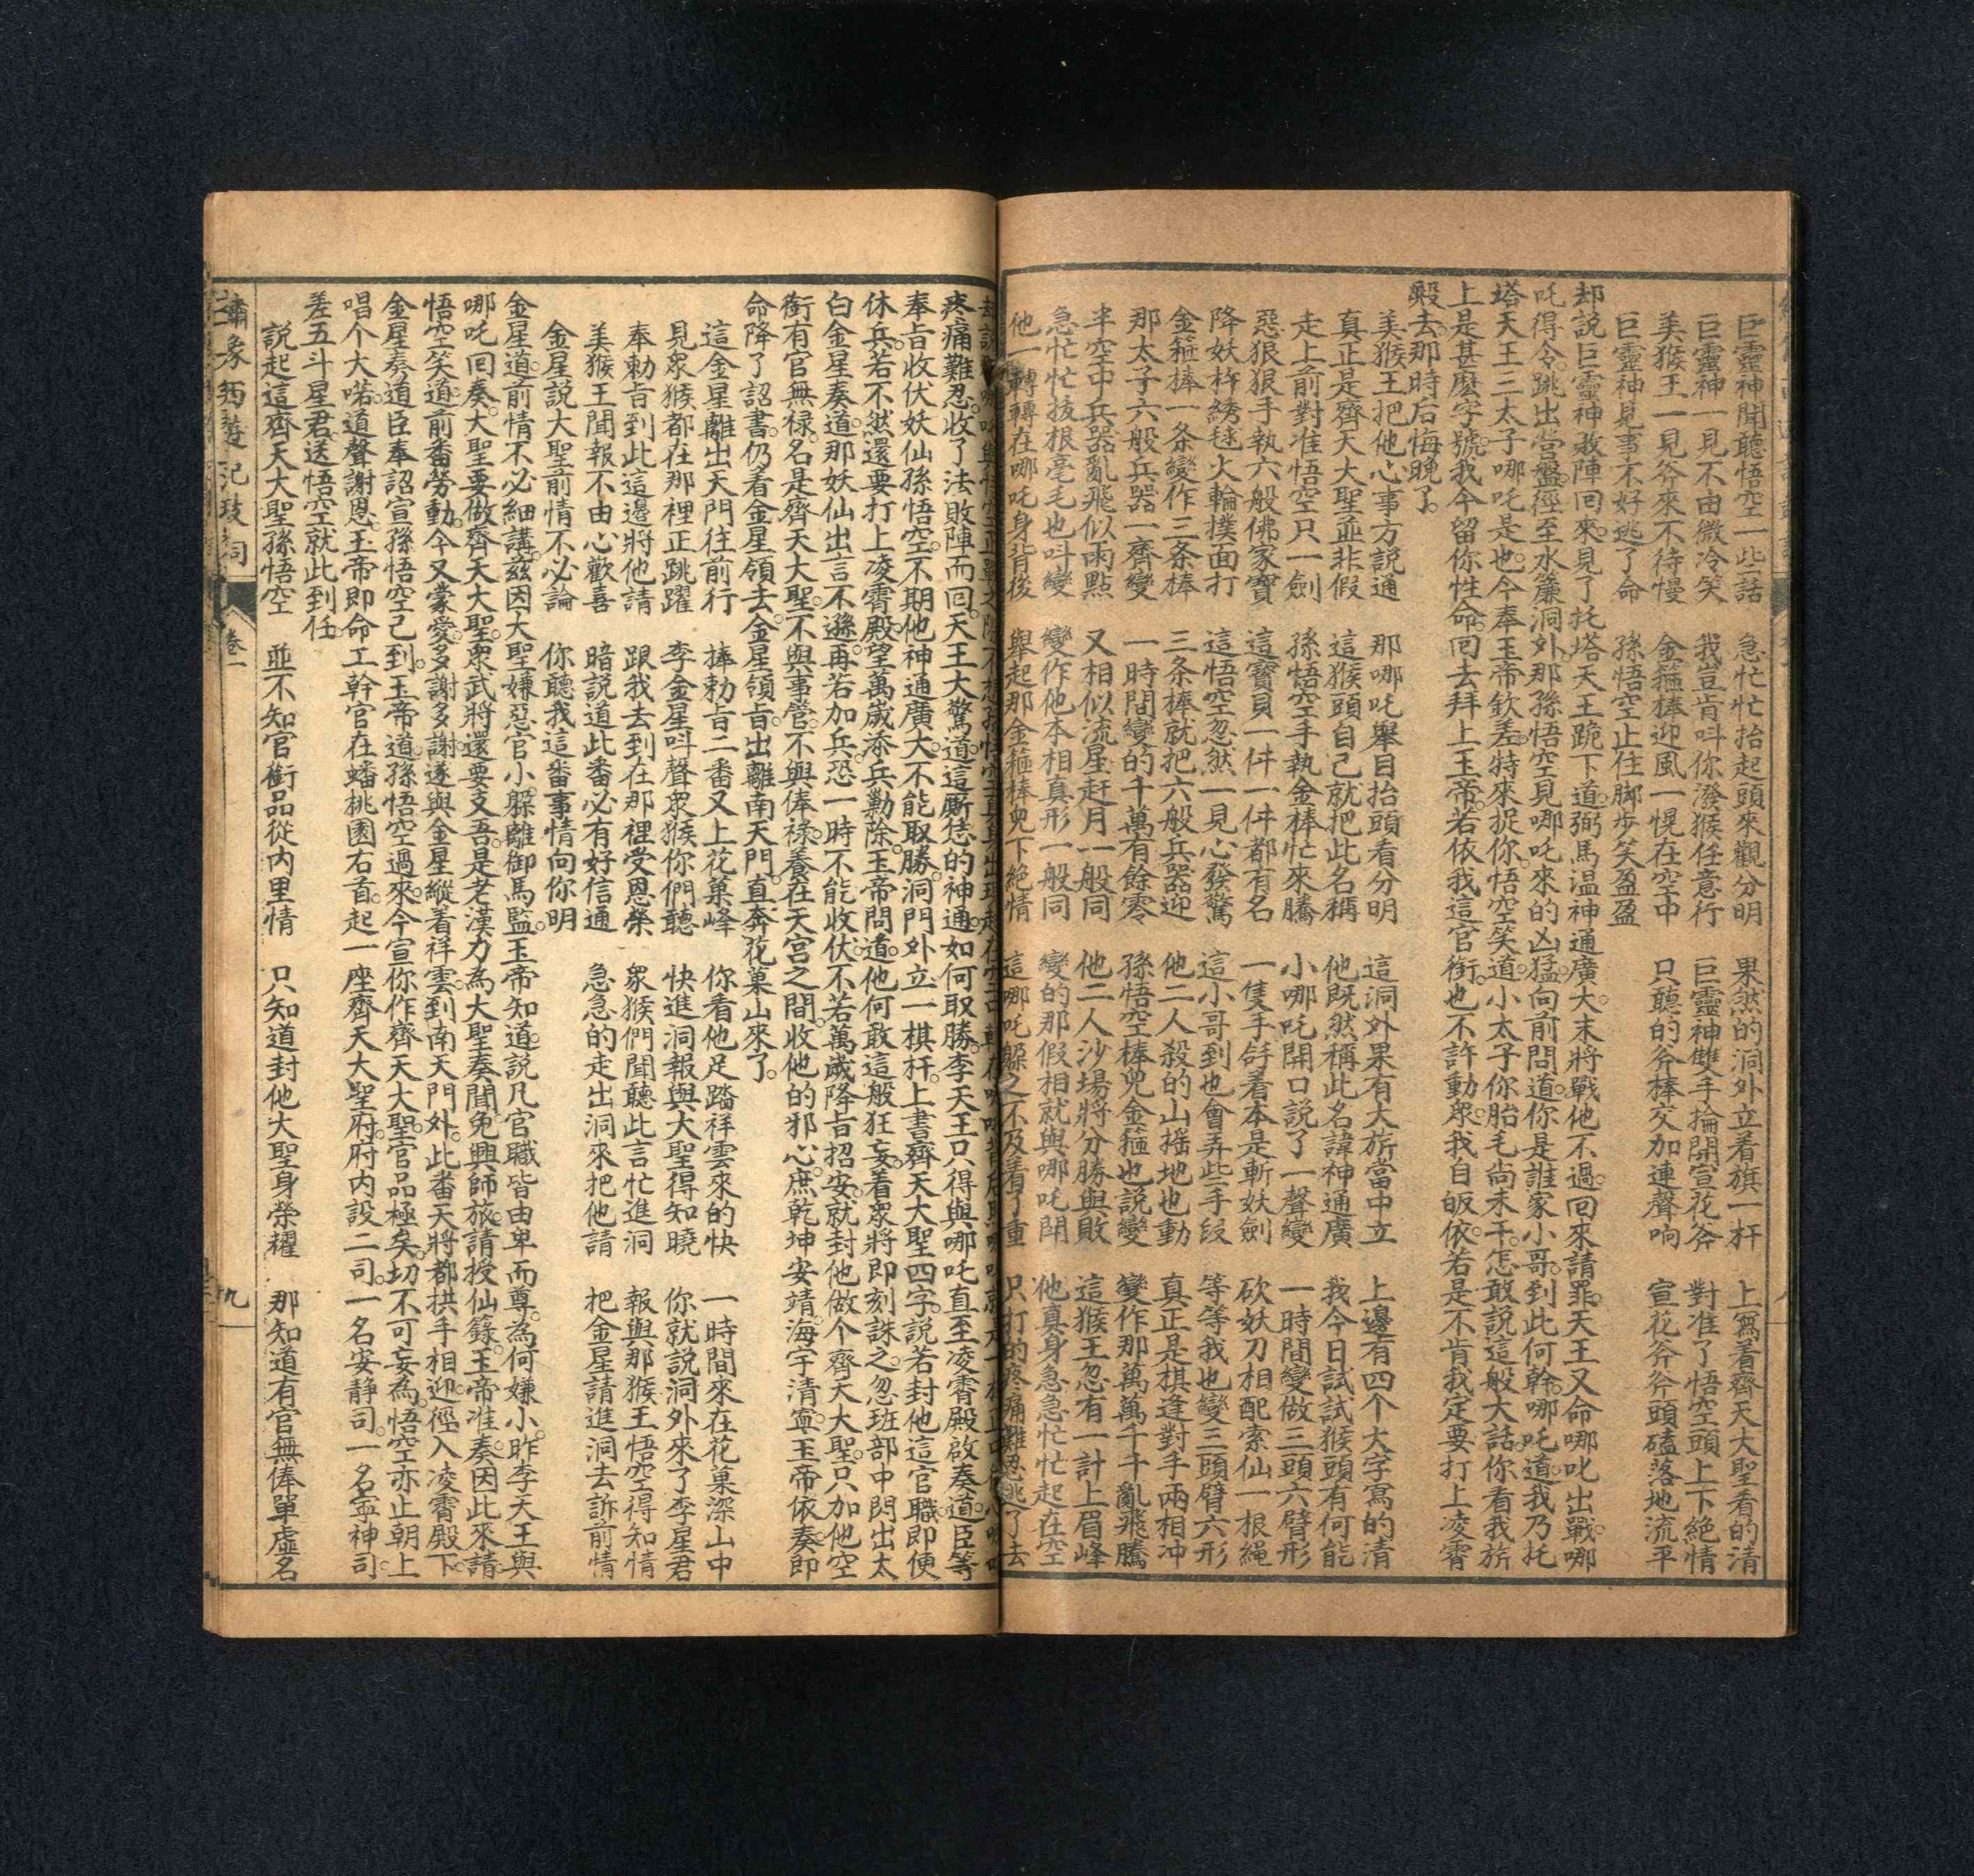 巨靈神聞聽悟空一些話　急忙忙抬起頭來觀分明　果然的洞外立着旗一杆　上寫着齊天大聖看的清
巨靈神一見不由微冷笑　我豈肯呌你潑猴任意行　巨靈神雙手掄開宣花斧　對准了悟空頭上下絶情
美猴王一見斧來不待慢　金箍棒迎風一愰在空中　只聽的斧棒交加連聲响　宣花斧斧頭磕落地流平
巨靈神見事不好逃了命　孫悟空止住脚步笑盈盈
却説巨靈神敗陣回來。見了托塔天王跪下道。弼馬温神通廣大。末將戰他不過。回來請罪。天王又命哪叱出戰。哪
吒得令。跳出營盤徑至水簾洞外。那孫悟空見哪吒來的凶猛。向前問道。你是誰家小哥。到此何幹。哪吒道。我乃托
塔天王三太子哪吒是也。今奉玉帝欽差。特來捉你。悟空笑道。小太子你胎毛尚未干。怎敢説這般大話。你看我旂
上是甚麽字號。我今留你性命。回去拜上玉帝。若依我這官銜。也不許動衆。我自皈依。若是不肯。我定要打上凌霄
殿去。那時后悔晚了。
美猴王把他心事方説通　那哪吒舉目抬頭看分明　這洞外果有大旂當中立　上邊有四个大字寫的清
真正是齊天大聖並非假　這猴頭自己就把此名稱　他既然稱此名諱神通廣　我今日試試猴頭有何能
走上前對准悟空只一劍　孫悟空手執金棒忙來騰　小哪吒開口説了一聲變　一時間變做三頭六臂形
惡狠狠手執六般佛家寶　這寶貝一件一件都有名　一隻手舒着本是斬妖劍　砍妖刀相配索仙一根繩
降妖杵綉毬火輪撲面打　這悟空忽然一見心發驚　這小哥到也會弄些手段　等等我也變三頭臂六形
金箍棒一条變作三条棒　三条棒就把六般兵器迎　他二人殺的山摇地也動　真正是棋逢對手兩相冲
那太子六般兵器一齊變　一時間變的千萬有餘零　孫悟空棒兒金箍也説變　變作那萬萬千千亂飛騰
半空中兵器亂飛似雨點　又相似流星赶月一般同　他二人沙場將分勝與敗　這猴王忽有一計上眉峰
急忙忙拔根毫毛也呌變　變作他本相真形一般同　變的那假相就與哪吒鬥　他真身急急忙忙起在空
他一轉轉在哪吒身背後　舉起那金箍棒兒下絶情　這哪吒躱之不及着了重　只打的疼痛難忍逃了去
疼痛難忍。收了法敗陣而回。天王大驚道。這厮恁的神通。如何取勝。李天王只得與哪吒直至凌霄殿啟奏道。臣等
奉旨收伏妖仙孫悟空。不期他神通廣大。不能取勝。洞門外立一棋杆。上書齊天大聖四字。説若封他這官職。即便
休兵。若不然。還要打上凌霄殿。望萬歲添兵勦除。玉帝問道。他何敢這般狂妄。着衆將即刻誅之。忽班部中閃出太
白金星奏道。那妖仙出言不遜。再若加兵。恐一時不能收伏。不若萬歲降旨招安。就封他做个齊天大聖。只加他空
銜有官無禄。名是齊天大聖。不與事管。不與俸禄。養在天宮之間。收他的邪心。庶乾坤安靖。海宇清寧。玉帝依奏。即
命降了詔書。仍着金星領去。金星領旨。出離南天門。直奔花菓山來了。
這金星離出天門往前行　捧勅旨二番又上花菓峰　你看他足踏祥雲來的快　一時間來在花菓深山中
見衆猴都在那裡正跳躍　李金星呌聲衆猴你們聽　快進洞報與大聖得知曉　你就説洞外來了李星君
奉勅旨到此這邊將他請　跟我去到在那裡受恩榮　衆猴們聞聽此言忙進洞　報與那猴王悟空得知情
美猴王聞報不由心歡喜　暗説道此番必有好信通　急急的走出洞來把他請　把金星請進洞去訴前情
金星説大聖前情不必論　你聽我這番事情向你明
金星道。前情不必細講。兹因大聖嫌惡官小。躱離御馬監。玉帝知道。説凡官職皆由卑而尊。為何嫌小。昨李天王與
哪吒回奏。大聖要做齊天大聖。衆武將還要支吾。是老漢力為大聖奏聞。免興師旅。請授仙籙。玉帝准奏。因此來請
悟空笑道。前番勞動。今又蒙愛。多謝多謝。遂與金星縱着祥雲。到南天門外。此番天將都拱手相迎。徑入凌霄殿下。
金星奏道。臣奉詔宣孫悟空己到。玉帝道。孫悟空過來。今宣你作齊天大聖。官品極矣。切不可妄為。悟空亦止朝上
唱个大喏。道聲謝恩。玉帝即命工幹官在蟠桃園右首。起一座齊天大聖府。府内設二司。一名安静司。一名寧神司。
差五斗星君送悟空就此到任。
説起這齊天大聖孫悟空　並不知官銜品從内里情　只知道封他大聖身榮耀　那知道有官無俸單虛名
繡象西遊記鼓詞　卷一　九